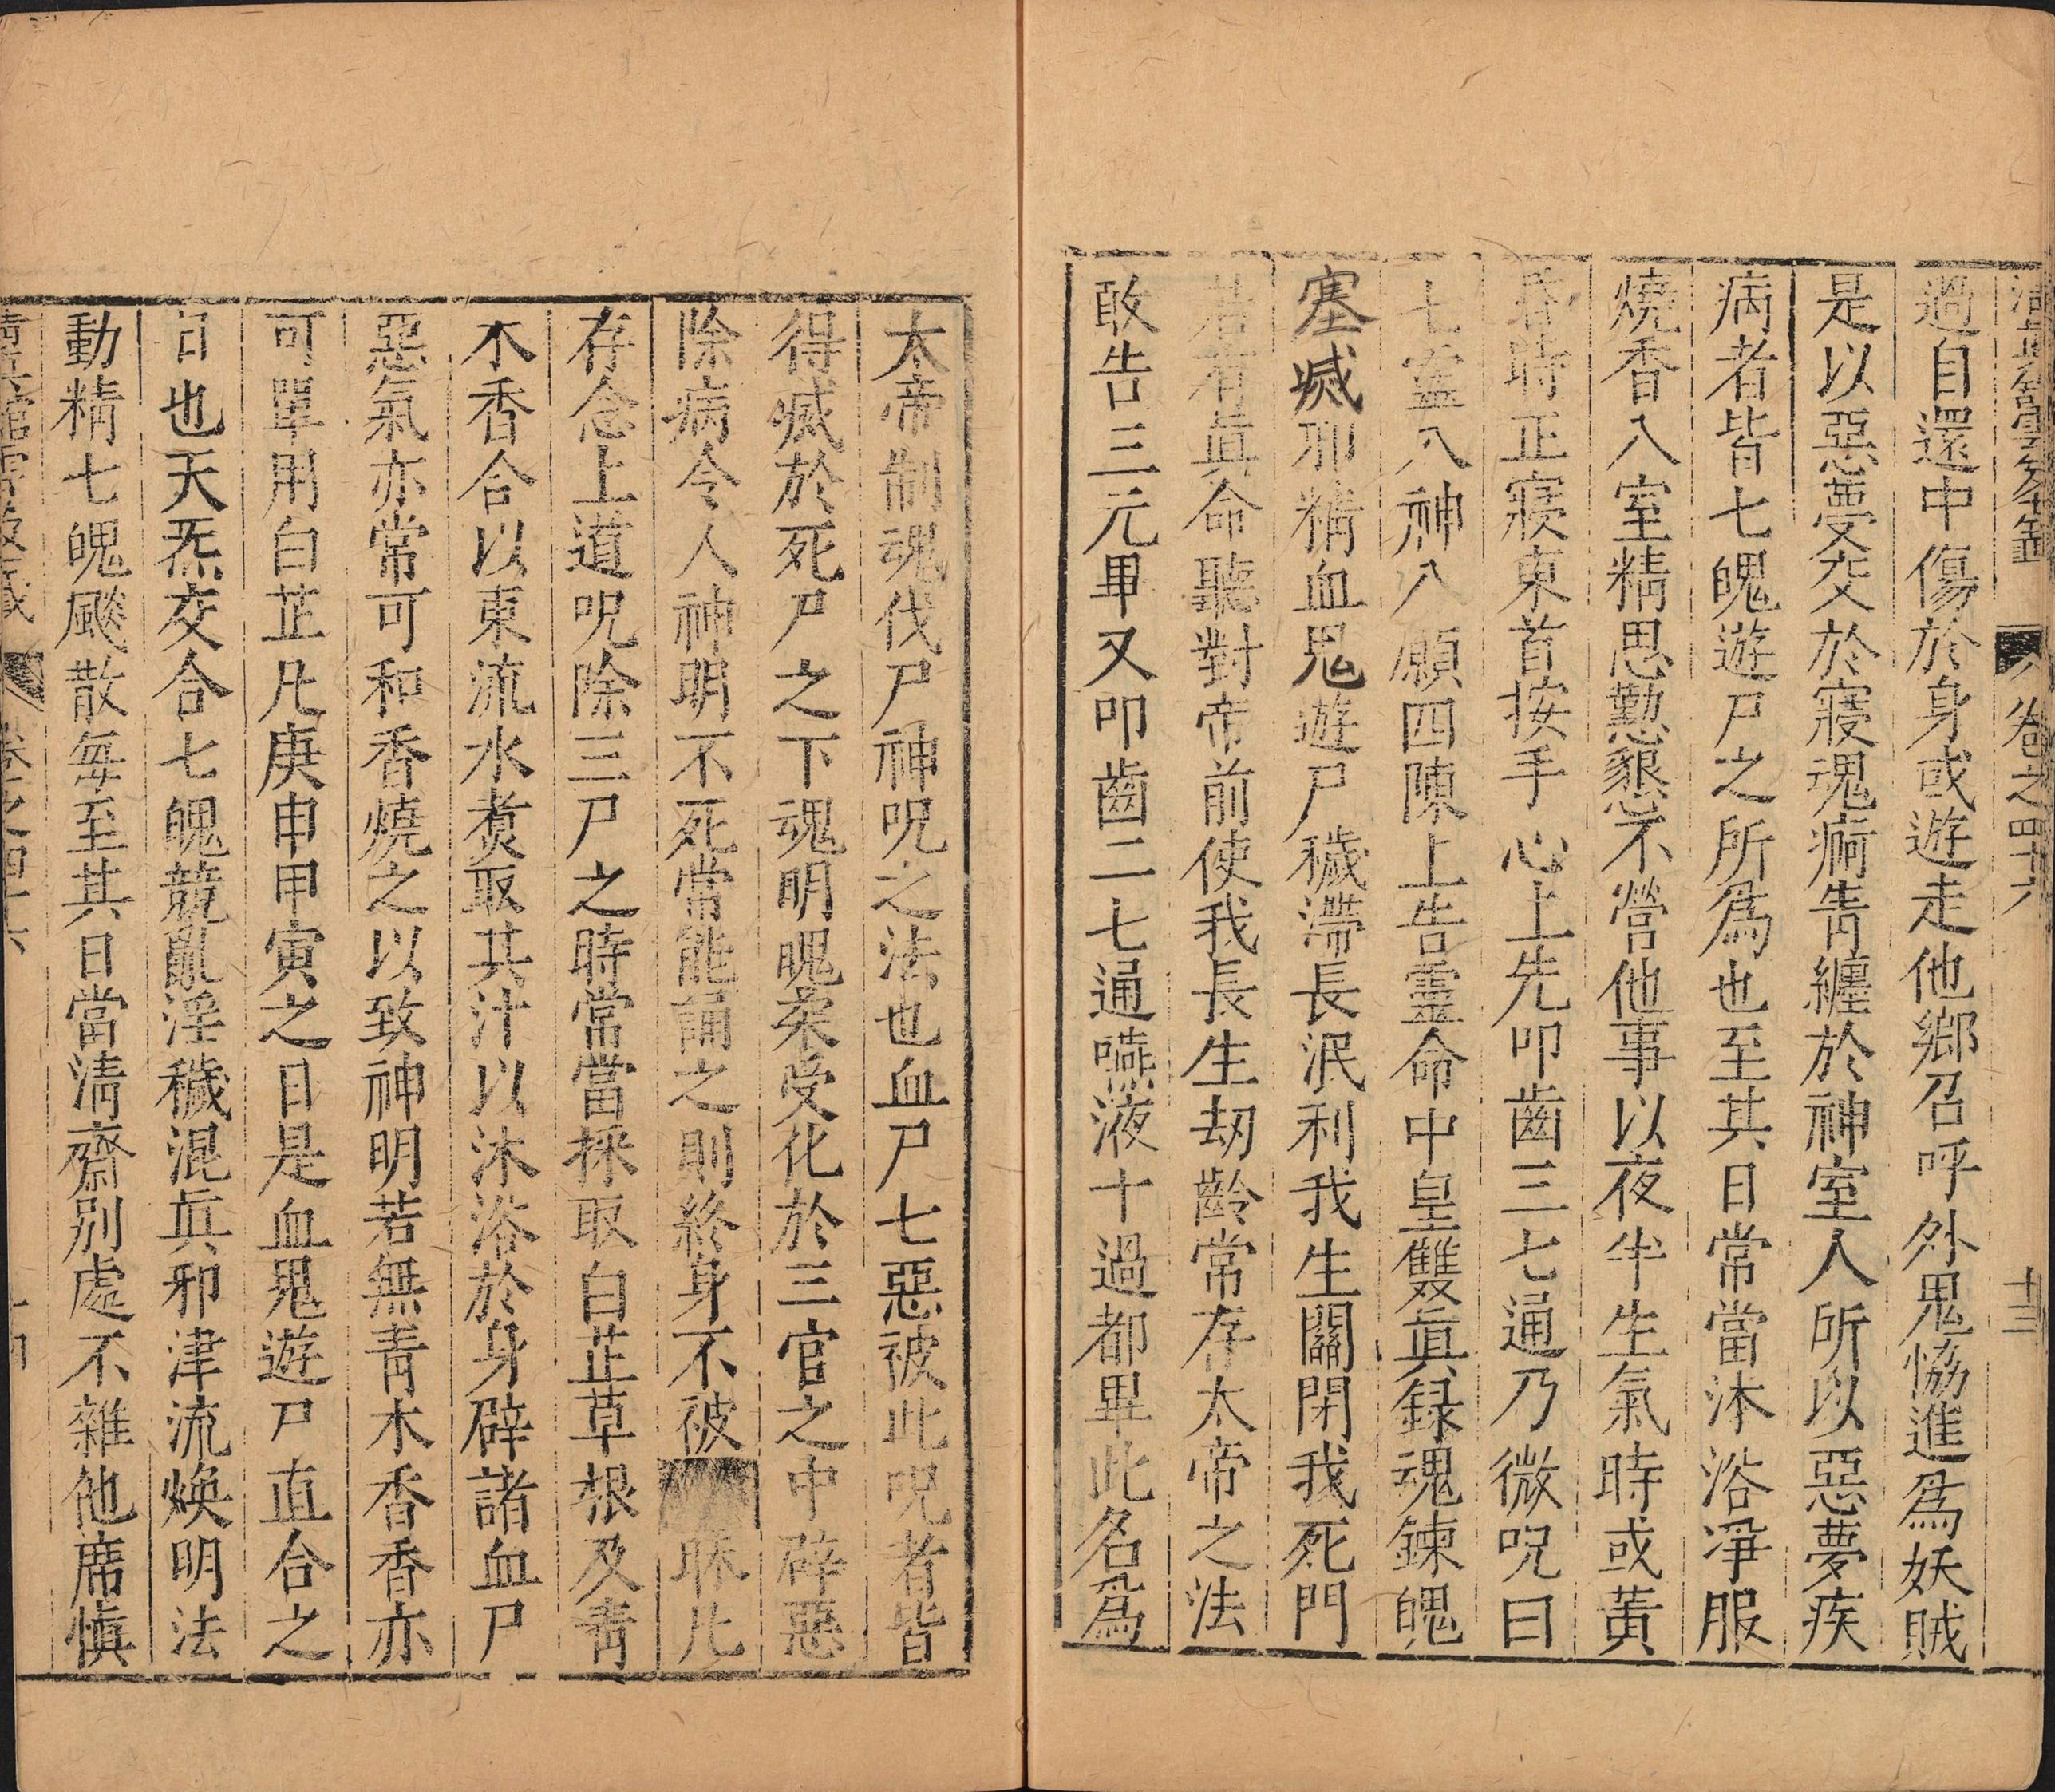 卷之四十六 十三
過自還中傷於身或遊走他鄉召呼外鬼恊進爲妖賊
是以惡夢交於寢魂痾眚纏於神室人所以惡夢疾
病者皆七魄遊尸之所爲也至其日常當沐浴淨服
燒香入室精思懃懇不營他事以夜半生氣時或黃
昏時正寢東首按手心上先叩齒三七通乃微呪曰
七靈八神八願四陳上告靈命中皇雙眞録魂錬魄
塞滅邪精血鬼遊尸穢滯長泯利我生關閉我死門
若有眞命聽對帝前使我長生劫齡常存太帝之法
敢告三元畢又叩齒二七通嚥液十過都畢此名爲
太帝制魂伐尸神呪之法也血尸七惡被此呪者皆
得滅於死尸之下魂明魄柔受化於三官之中辟惡
除病令人神明不死常能誦之則終身不被
存念上道呪除三尸之時常當採取白芷草根及青
木香合以東流水煑取其汁以沐浴於身辟諸血尸
惡氣亦常可和香燒之以致神明若無青木香香亦
可單用白芷凡庚申甲寅之日是血鬼遊尸直合之
日也天炁交合七魄競亂淫穢混眞邪津流煥明法
動精七魄飈散每至其日當清齋別處不雜他席愼